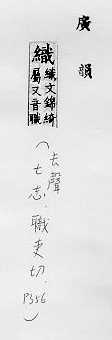 廣韻
織 織文錦綺
屬又音職
（去聲 七志．職吏切．P356）